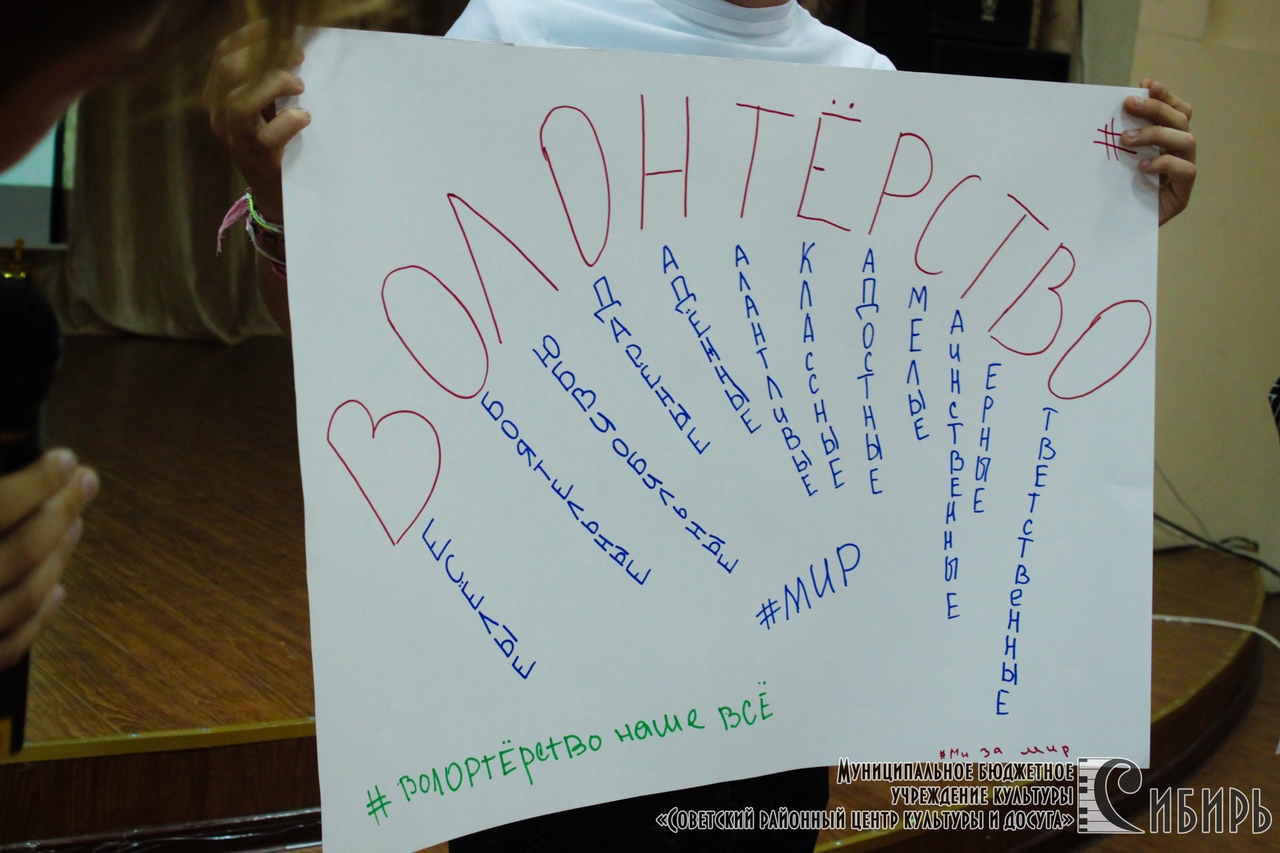 #
ВОЛОНТЁРСТВО
ЕСЕЛЫЕ
БОЯТЕЛЬНЫЕ
ЮБВИОБИЛЬНЫЕ
ДАРЕНЫЕ
АДЕЖНЫЕ
АЛАНТЛИВЫЕ
КЛАССНЫЕ
АДОСТНЫЕ
МЕЛЫЕ
АИНСТВЕННЫЕ
ЕРНЫЕ
ТВЕТСТВЕННЫЕ
#МИР
# ВОЛОРТЁРСТВО наше ВСЁ
#Ми за мир
Муниципальное бюджетное
учреждение культуры
«Советский районный центр культуры и досуга»
Сибирь